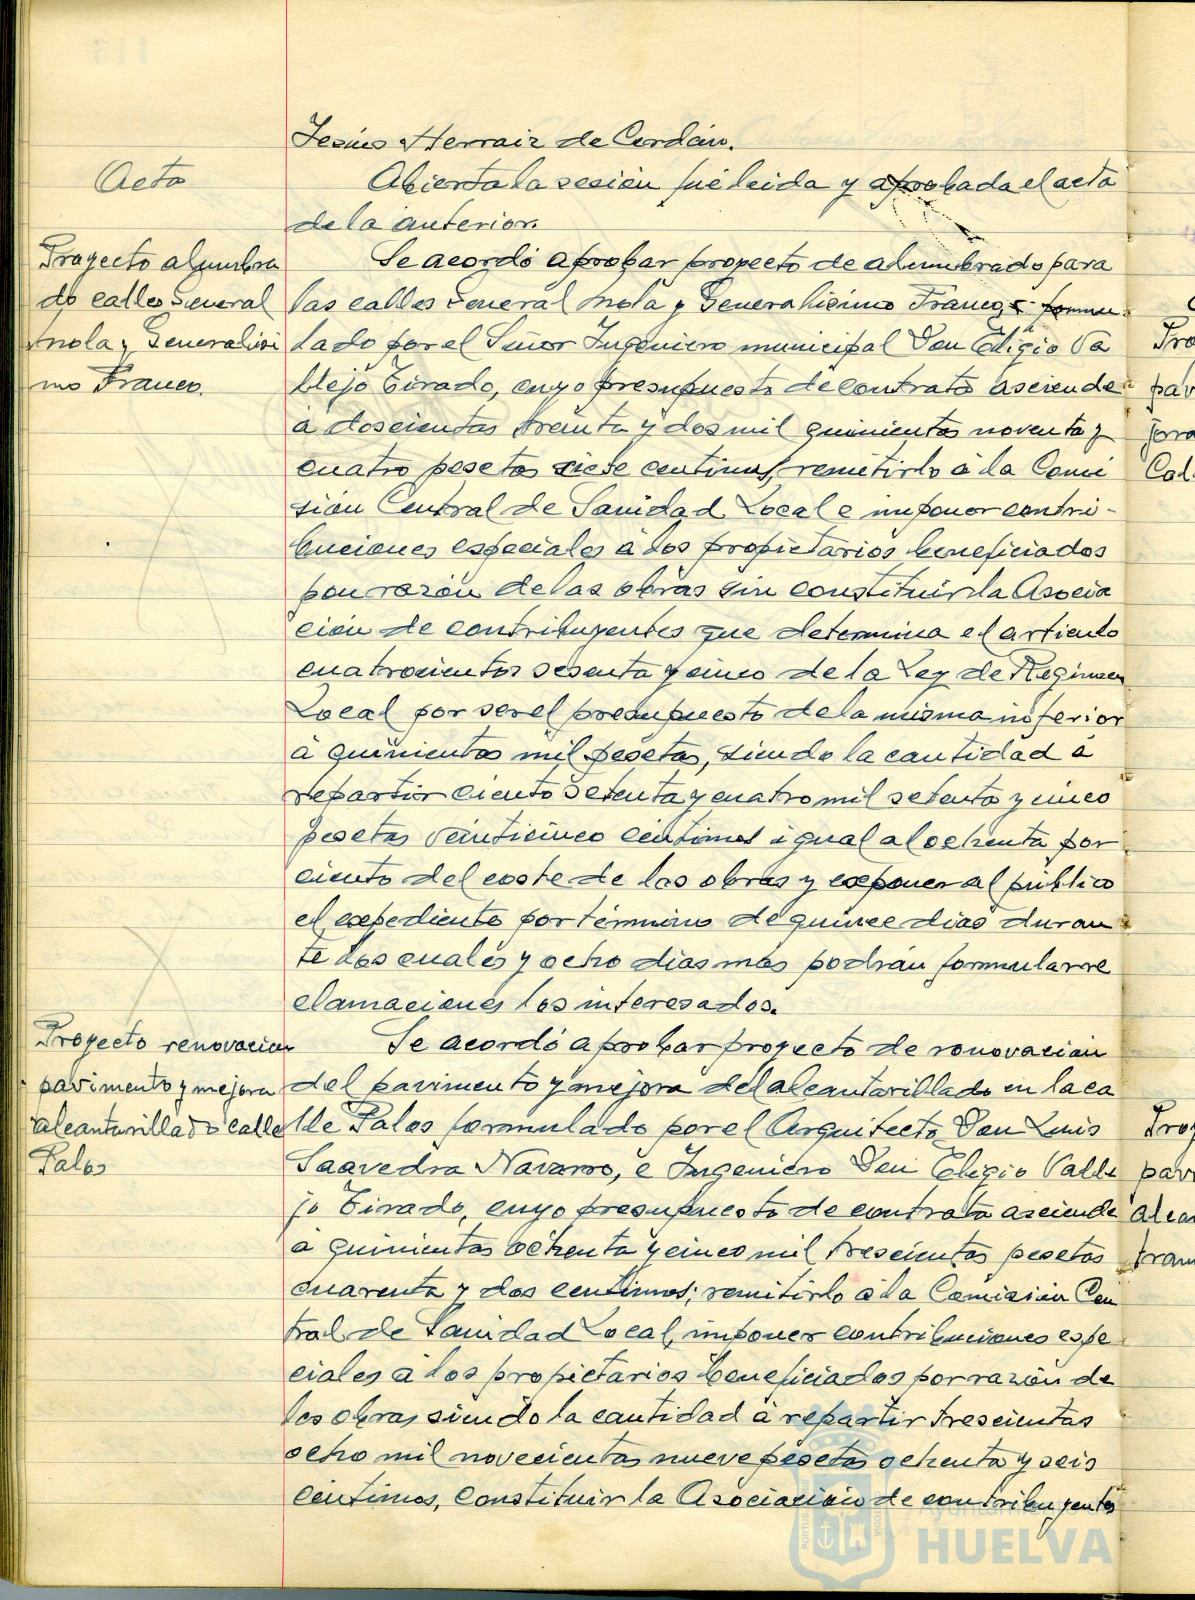 Jesús Herraiz de Cerdán.
Acta
Abierta la sesión fué leida y aprobada el acta
de la anterior.
Proyecto alumbra
do calles General
Mola y Generalísi
mo Franco.
Se acordó aprobar proyecto de alumbrado para
las calles General Mola y Generalísimo Franco, formu-
lado por el Señor Ingeniero municipal Don Eligio Va
llejo Tirado, cuyo presupuesto de contrata asciende
á doscientas treinta y dos mil quinientas noventa y
cuatro pesetas siete centimos, remitirlo á la Comi
sión Central de Sanidad Local e imponer contri-
buciones especiales á los propietarios beneficiados
por razón de las obras sin constituir la Asocia
ción de contribuyentes que determina el artículo
cuatrocientos sesenta y cinco de la Ley de Régimen
Local por ser el presupuesto de la misma inferior
á quinientas mil pesetas, siendo la cantidad á
repartir ciento setenta y cuatro mil setenta y cinco
pesetas veinticinco céntimos igual al ochenta por
ciento del coste de las obras y exponer al público
el expediente por término de quince dias duran
te los cuales y ocho dias más podrán formular re
clamaciones los interesados.
Proyecto renovación
pavimento y mejora
alcantarillado calle
Palos
Se acordó aprobar proyecto de renovación
del pavimento y mejora del alcantarillado en la ca
lle Palos formulado por el Arquitecto Don Luis
Saavedra Navarro, e Ingeniero Don Eligio Valle
jo Tirado, cuyo presupuesto de contrata asciende
á quinientas ochenta y cinco mil trescientas pesetas
cuarenta y dos centimos; remitirlo á la Comisión Cen
tral de Sanidad Local, imponer contribuciones espe
ciales á los propietarios beneficiados por razón de
las obras siendo la cantidad á repartir trescientas
ocho mil novecientas nueve pesetas ochenta y seis
céntimos, constituir la Asociación de contribuyentes
Pro
pav
jora
Cal
Proy
pavi
alcan
tram
Ayuntamiento de
HUELVA